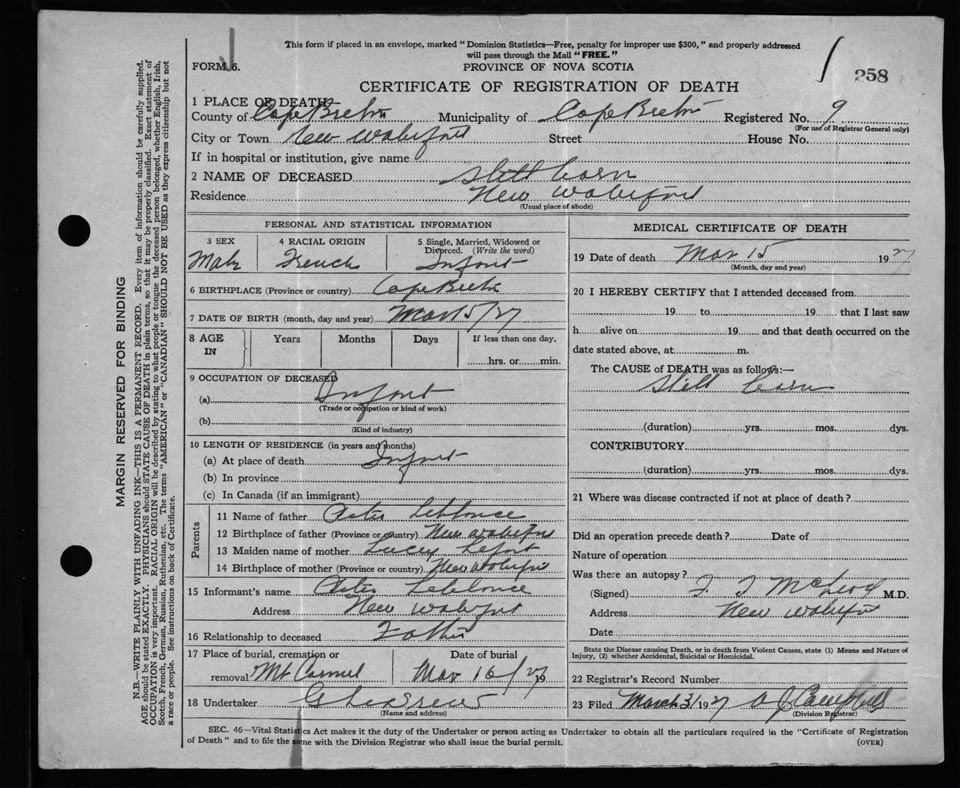 This form if placed in an envelope, marked "Dominion Statistics—Free, penalty for improper use $300," and properly addressed
will pass through the Mail "FREE."
FORM 6.
PROVINCE OF NOVA SCOTIA
258
CERTIFICATE OF REGISTRATION OF DEATH
1 PLACE OF DEATH
County of Cape Breton Municipality of Cape Breton Registered No. 9
(For use of Registrar General only)
City or Town New Waterford Street House No.
If in hospital or institution, give name
2 NAME OF DECEASED Still born
Residence New Waterford
(Usual place of abode)
PERSONAL AND STATISTICAL INFORMATION
3 SEX 4 RACIAL ORIGIN 5 Single, Married, Widowed or
Divorced. (Write the word)
Male French Infant
6 BIRTHPLACE (Province or country) Cape Breton
7 DATE OF BIRTH (month, day and year) Mar 15/27
8 AGE IN Years Months Days If less than one day,
hrs. or min.
9 OCCUPATION OF DECEASED
(a) Infant
(Trade or occupation or kind of work)
(b)
(Kind of industry)
10 LENGTH OF RESIDENCE (in years and months)
(a) At place of death Infant
(b) In province
(c) In Canada (if an immigrant)
Parents
11 Name of father Peter
12 Birthplace of father (Province or country) New Waterford
13 Maiden name of mother Lucey Lefort
14 Birthplace of mother (Province or country) New Waterford
15 Informant's name Peter
Address New Waterford
16 Relationship to deceased Father
17 Place of burial, cremation or Date of burial
removal Mt Carmel Mar 16/27 19
18 Undertaker
(Name and address)
MEDICAL CERTIFICATE OF DEATH
19 Date of death Mar 15 1927
(Month, day and year)
20 I HEREBY CERTIFY that I attended deceased from
19 to 19 that I last saw
h alive on 19 and that death occurred on the
date stated above, at m.
The CAUSE of DEATH was as follows:—
Still born
(duration) yrs. mos. dys.
CONTRIBUTORY
(duration) yrs. mos. dys.
21 Where was disease contracted if not at place of death?
Did an operation precede death? Date of
Nature of operation
Was there an autopsy?
(Signed) F J McLeod M.D.
Address New Waterford
Date
State the Disease causing Death, or in death from Violent Causes, state (1) Means and Nature of
Injury, (2) whether Accidental, Suicidal or Homicidal.
22 Registrar's Record Number
23 Filed March 31 1927 Campbell
(Division Registrar)
SEC. 46—Vital Statistics Act makes it the duty of the Undertaker or person acting as Undertaker to obtain all the particulars required in the "Certificate of Registration
of Death" and to file the same with the Division Registrar who shall issue the burial permit.
(OVER)
MARGIN RESERVED FOR BINDING
N.B.—WRITE PLAINLY WITH UNFADING INK—THIS IS A PERMANENT RECORD. Every item of information should be carefully supplied.
AGE should be stated EXACTLY. PHYSICIANS should STATE CAUSE OF DEATH in plain terms, so that it may be properly classified. Exact statement of
OCCUPATION is very important. RACIAL ORIGIN will be described by stating to what people or tongue the deceased person belonged, whether English, Irish,
Scotch, French, German, Russian, Ruthenian, etc. The terms "AMERICAN" or "CANADIAN" SHOULD NOT BE USED as they express citizenship but not
a race or people. See instructions on back of Certificate.